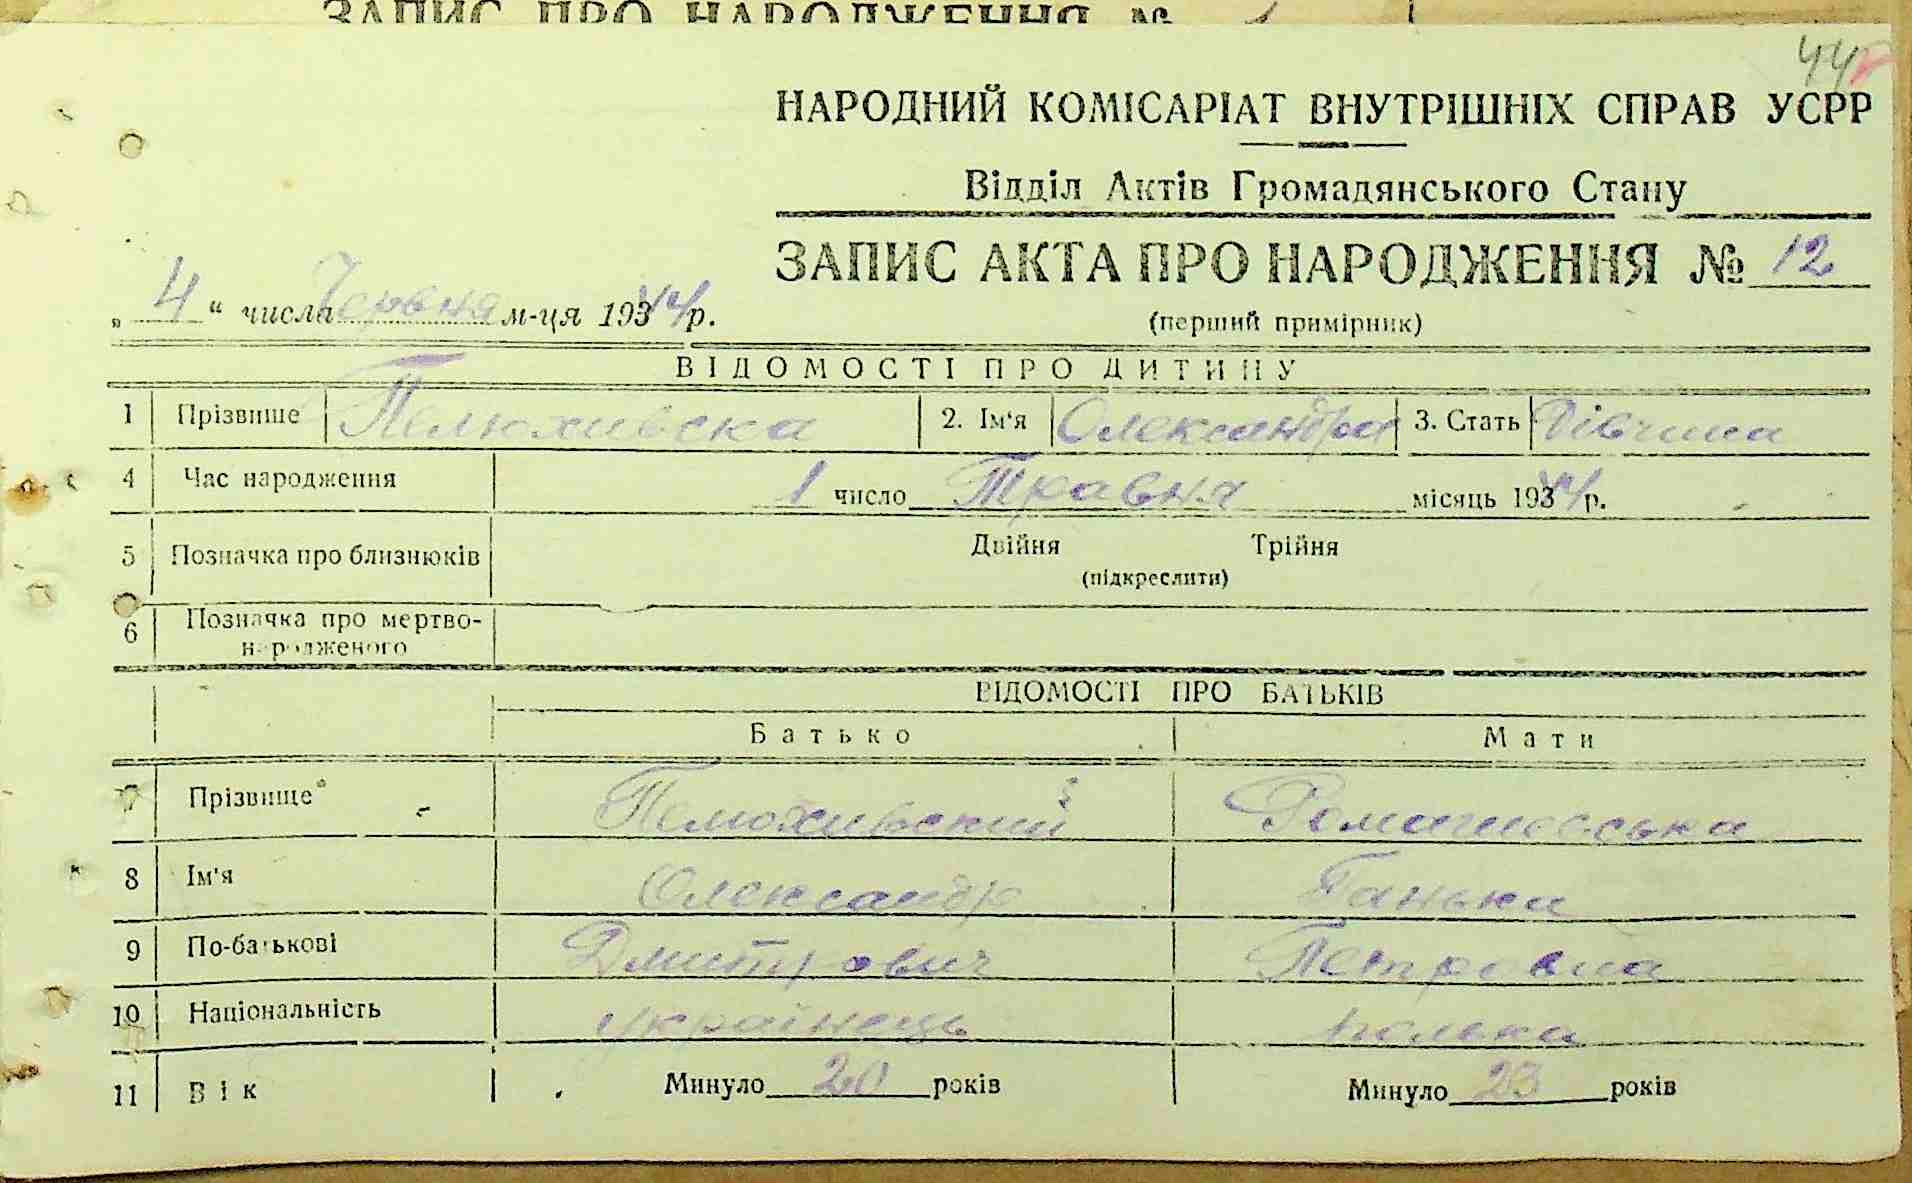 ЗАПИС ПРО НАРОДЖЕННЯ №
44
НАРОДНИЙ КОМІСАРІАТ ВНУТРІШНІХ СПРАВ УСРР
Відділ Актів Громадянського Стану
ЗАПИС АКТА ПРО НАРОДЖЕННЯ № 12
„ 4 “ числа Червня м-ця 1944 р.
(перший примірник)
ВІДОМОСТІ ПРО ДИТИНУ
1 Прізвище Пелюхивска 2. Ім'я Олександра 3. Стать Дівчина
4 Час народження 1 число Травня місяць 1944 р.
5 Позначка про близнюків Двійня Трійня
(підкреслити)
6 Позначка про мертво-
народженого
ВІДОМОСТІ ПРО БАТЬКІВ
Батько Мати
7 Прізвище Пелюхивский
8 Ім'я Олександр Ганька
9 По-батькові Дмитрович Петровна
10 Національність українець полька
11 Вік Минуло 20 років Минуло 23 років